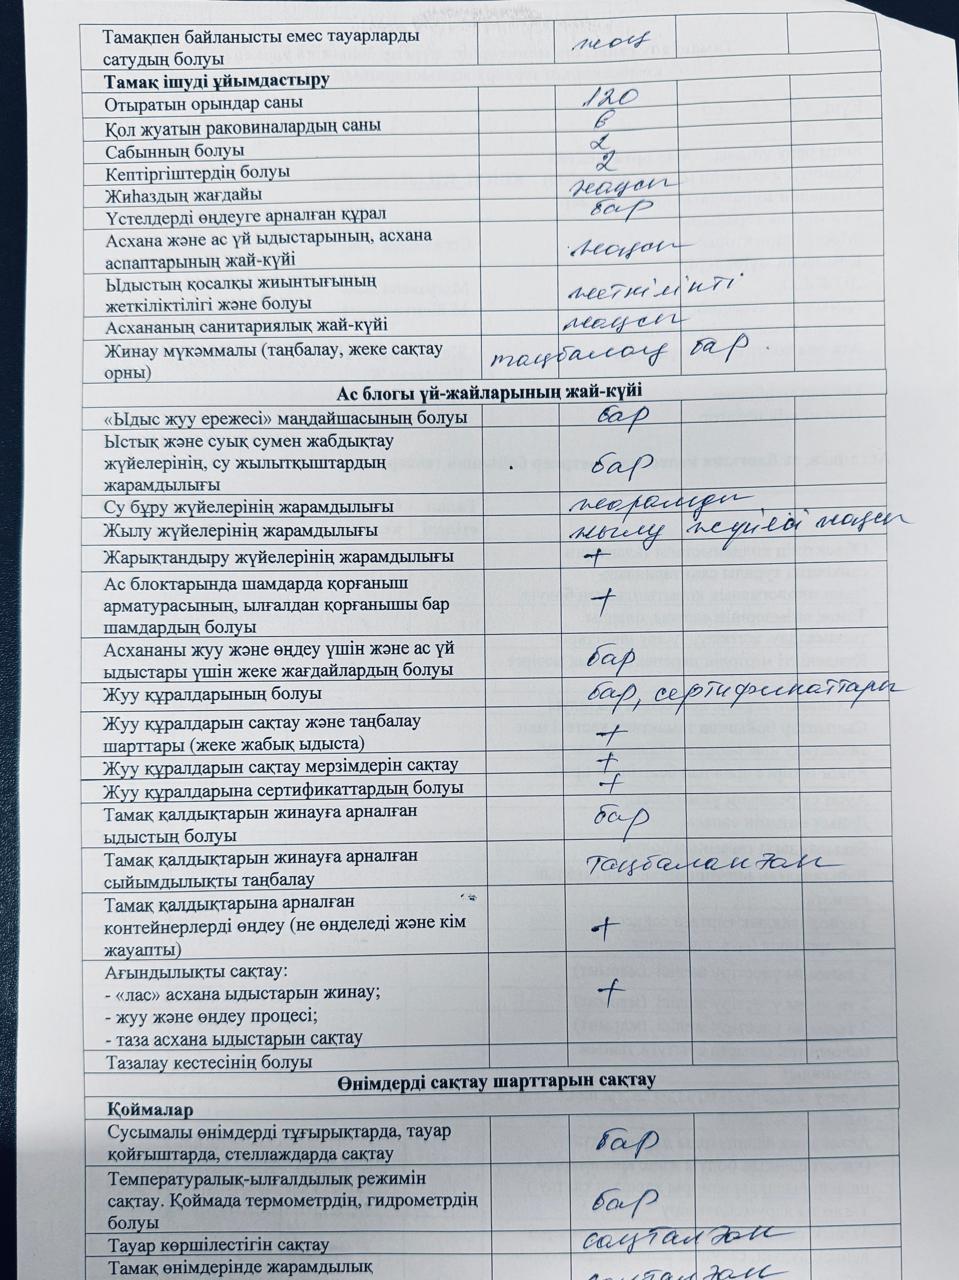 Тамақпен байланысты емес тауарларды
сатудың болуы жоқ
Тамақ ішуді ұйымдастыру
Отыратын орындар саны 120
Қол жуатын раковиналардың саны 6
Сабынның болуы 2
Кептіргіштердің болуы 2
Жиһаздың жағдайы жақсы
Үстелдерді өңдеуге арналған құрал бар
Асхана және ас үй ыдыстарының, асхана
аспаптарының жай-күйі жақсы
Ыдыстың қосалқы жиынтығының
жеткіліктілігі және болуы жеткілікті
Асхананың санитариялық жай-күйі жақсы
Жинау мүкәммалы (таңбалау, жеке сақтау
орны) таңбалау бар
Ас блогы үй-жайларының жай-күйі
«Ыдыс жуу ережесі» маңдайшасының болуы бар
Ыстық және суық сумен жабдықтау
жүйелерінің, су жылытқыштардың
жарамдылығы бар
Су бұру жүйелерінің жарамдылығы жарамды
Жылу жүйелерінің жарамдылығы жылу жүйесі жақсы
Жарықтандыру жүйелерінің жарамдылығы +
Ас блоктарында шамдарда қорғаныш
арматурасының, ылғалдан қорғанышы бар
шамдардың болуы +
Асхананы жуу және өңдеу үшін және ас үй
ыдыстары үшін жеке жағдайлардың болуы бар
Жуу құралдарының болуы бар, сертификаттары
Жуу құралдарын сақтау және таңбалау
шарттары (жеке жабық ыдыста) +
Жуу құралдарын сақтау мерзімдерін сақтау +
Жуу құралдарына сертификаттардың болуы +
Тамақ қалдықтарын жинауға арналған
ыдыстың болуы бар
Тамақ қалдықтарын жинауға арналған
сыйымдылықты таңбалау таңбаланған
Тамақ қалдықтарына арналған
контейнерлерді өңдеу (не өңделеді және кім
жауапты) +
Ағындылықты сақтау:
- «лас» асхана ыдыстарын жинау;
- жуу және өңдеу процесі;
- таза асхана ыдыстарын сақтау +
Тазалау кестесінің болуы
Өнімдерді сақтау шарттарын сақтау
Қоймалар
Сусымалы өнімдерді тұғырықтарда, тауар
қойғыштарда, стеллаждарда сақтау бар
Температуралық-ылғалдылық режимін
сақтау. Қоймада термометрдің, гидрометрдің
болуы бар
Тауар көршілестігін сақтау сақталған
Тамақ өнімдерінде жарамдылық сақталған